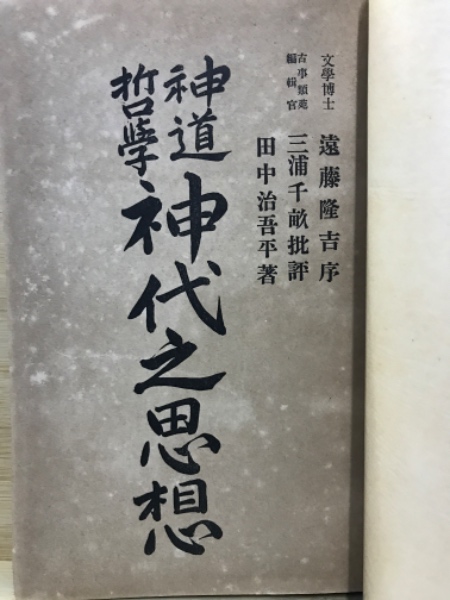 文學博士 遠藤隆吉序
古事類苑編輯官 三浦千畝批評
田中治吾平著
神道哲學
神代之思想